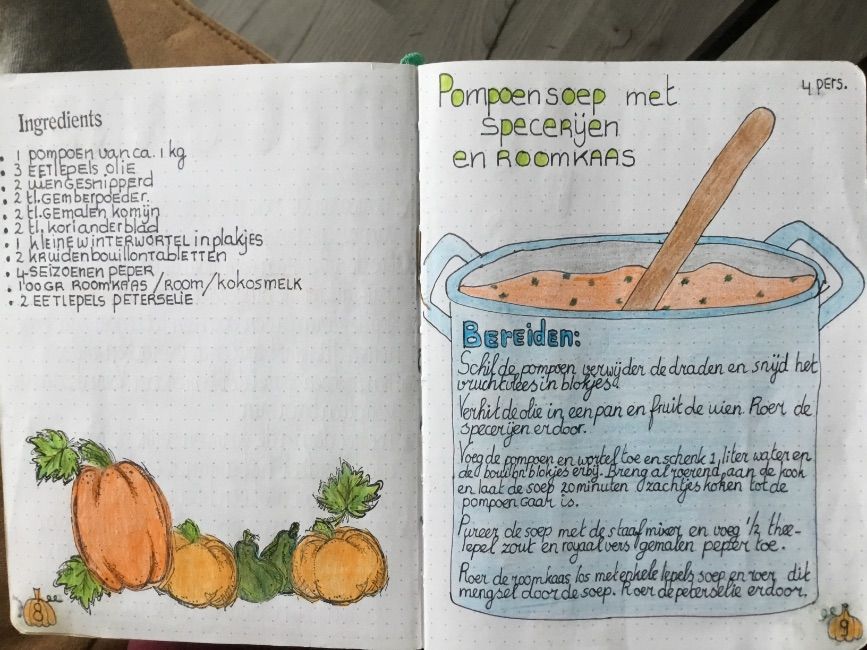 Ingredients
1 POMPOEN van ca. 1 kg
3 EETLEPELS OLIE
2 UIEN GESNIPPERD
2 tl. GEMBERPOEDER.
2 tl. GEMALEN KOMIJN
2 tl. KORIANDERBLAD
1 KLEINE WINTERWORTEL in plakjes
2 KRUIDENBOUILLONTABLETTEN
4-SEIZOENEN PEPER
100GR ROOMKAAS/ROOM/KOKOSMELK
2 EETLEPELS PETERSELIE
8
4 PERS.
Pompoensoep met
Specerijen
en ROOMKAAS
BEREIDEN:
Schil de pompoen verwijder de draden en snijd het
vruchtvlees in blokjes.
Verhit de olie in een pan en fruit de uien. Roer de
specerijen erdoor.
Voeg de pompoen en wortel toe en schenk 1 liter water en
de bouillonblokjes erbij. Breng al roerend aan de kook
en laat de soep 20 minuten zachtjes koken tot de
pompoen gaar is.
Pureer de soep met de staafmixer en voeg ½ thee-
lepel zout en royaal vers gemalen peper toe.
Roer de roomkaas los met enkele lepels soep en roer dit
mengsel door de soep. Roer de peterselie erdoor.
9